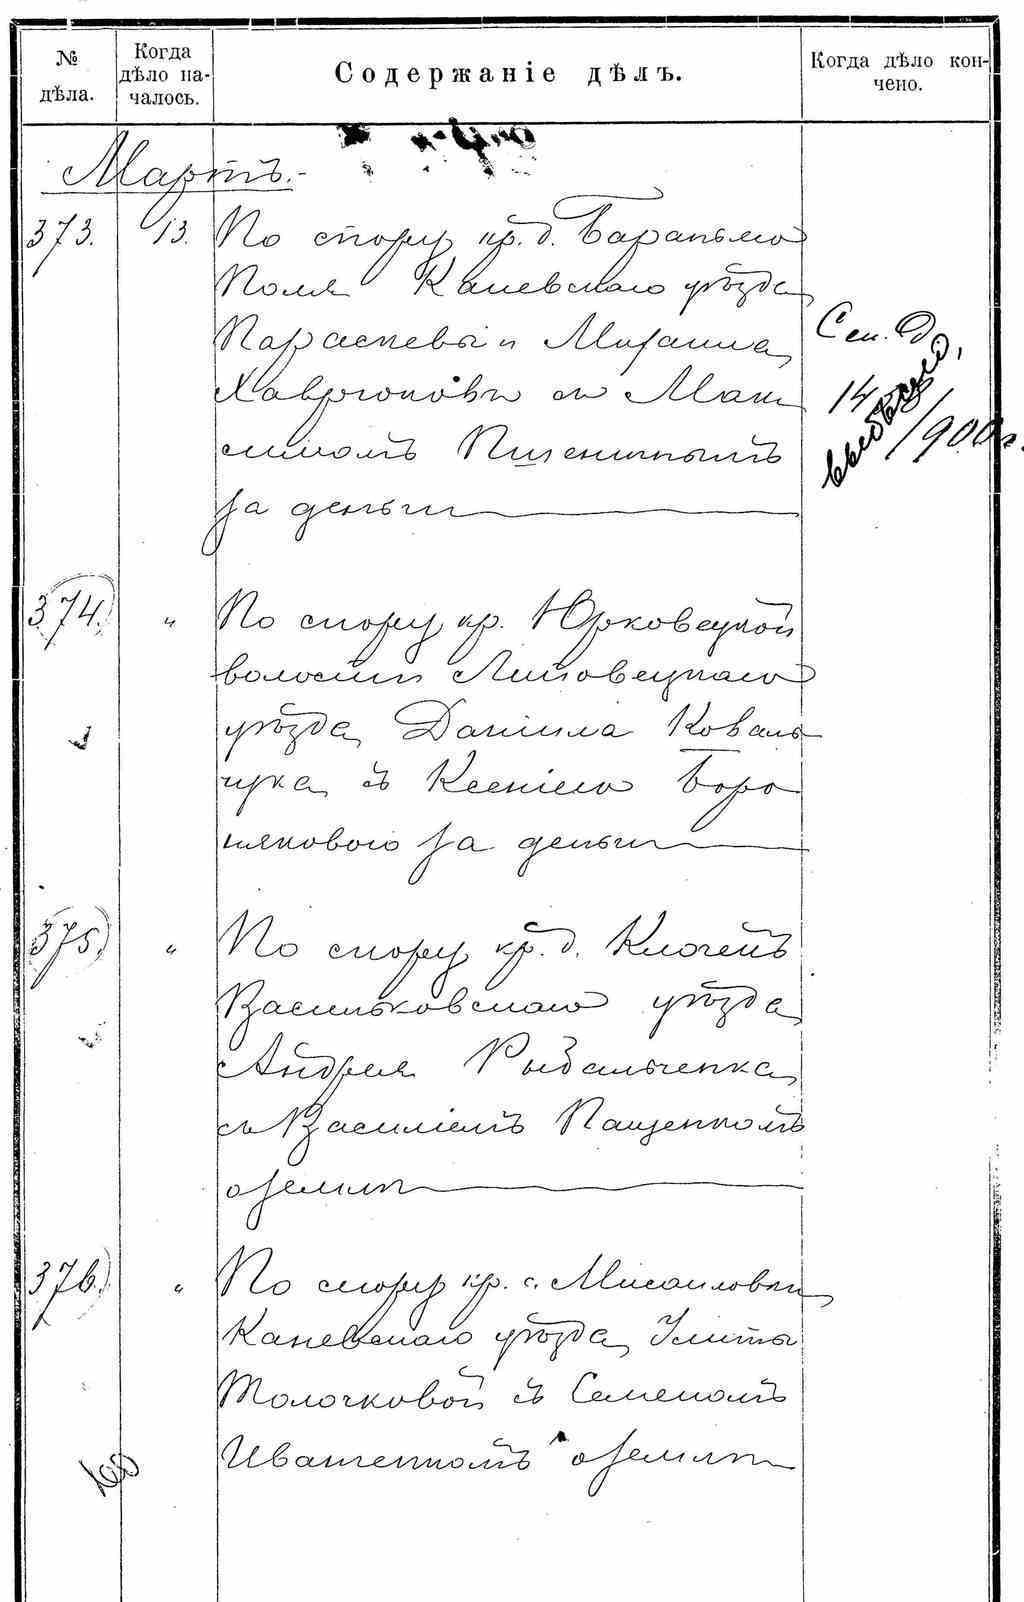 № дѣла.
Когда дѣло началось.
Содержаніе дѣлъ.
Когда дѣло кончено.
Мартъ.
373. 13. По спору кр. д. Бараньяго
Поля Каневскаго уѣзда
Параскевы и Михаила
Хаврюковъ съ Мак
симомъ Пшеничнымъ
за деньги
Сен. Д
14
/900 г.
374. " По спору кр. Юрковецкой
волости Липовецкаго
уѣзда Даніила Коваль
чука съ Ксеніею Боро
няковою за деньги
375. " По спору кр. д. Клочекъ
Васильковскаго уѣзда
Андрея Рыбальченка
съ Василіемъ Пащенкомъ
о землѣ
376. " По спору кр. с. Мисаиловки
Каневскаго уѣзда Улиты
Толочковой съ Семеномъ
Иващенкомъ о землѣ